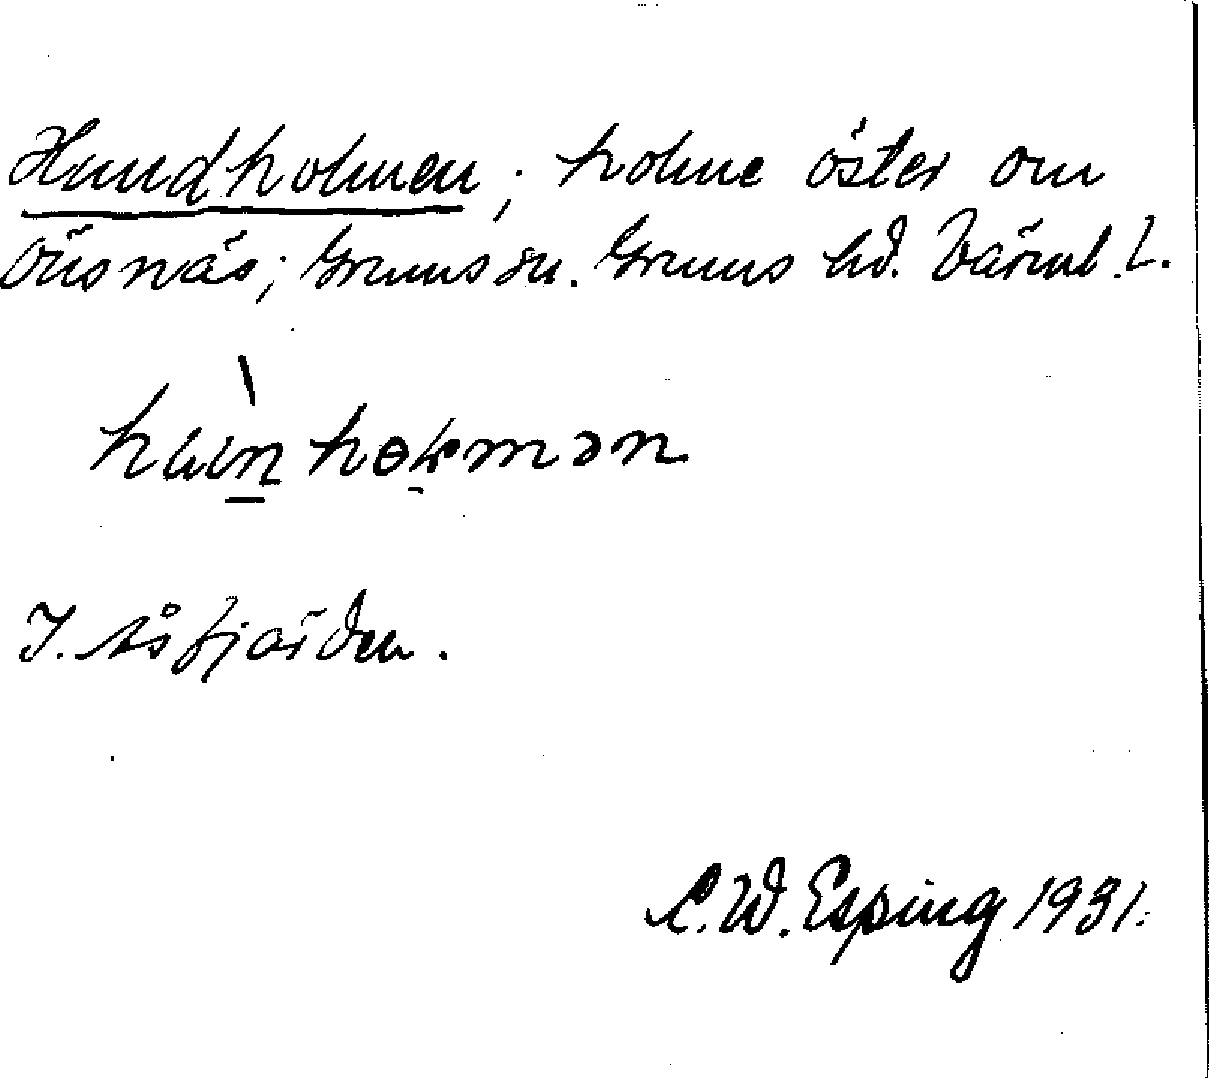 Hundholmen; holme öster om
Örsnäs; Grums sn. Grums hd. Värml. L.
I. Åsfjärden.
C.W. Esping 1931.